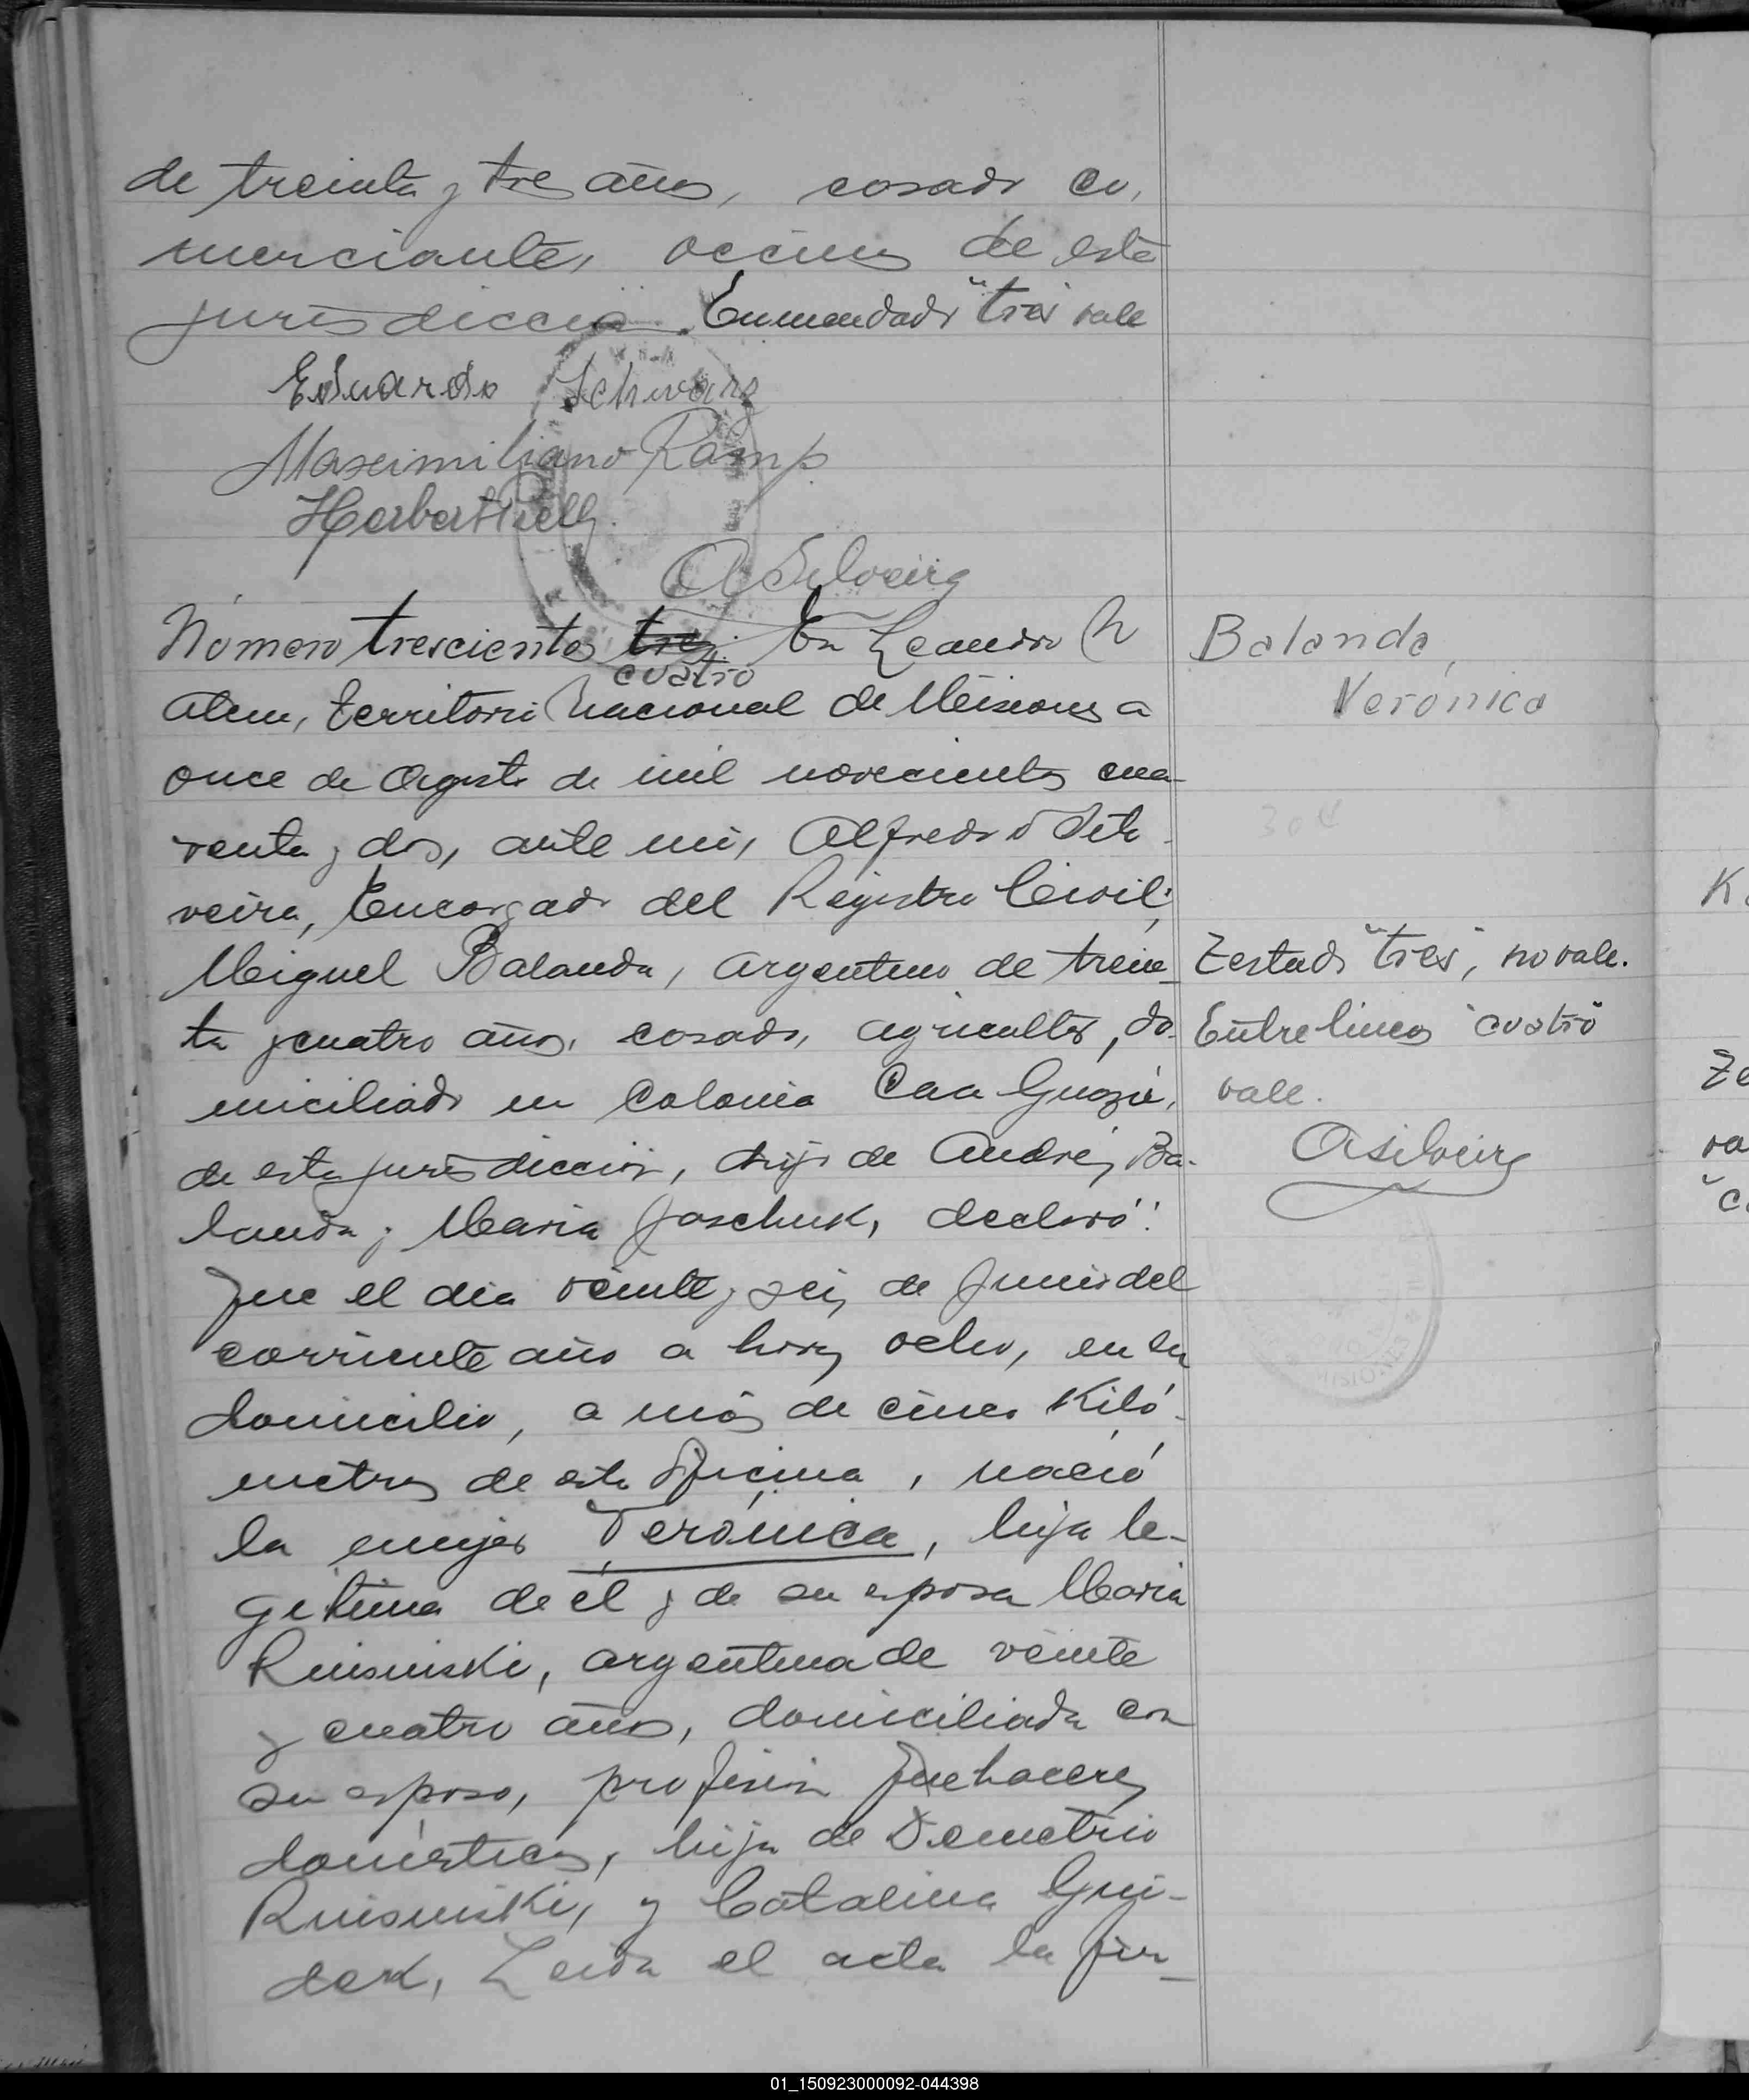 de treinta y tres años, casado co,
merciante, vecinos de esta
jurisdicción. Enmendado "tres" vale
Eduardo Schwarz
Maximiliano Ramp
Herbert
A Silveira
Número trescientos tres. En Leandro N
cuatro
Alem, Territorio Nacional de Misiones a
once de Agosto de mil novecientos cua-
renta y dos, ante mi, Alfredo Sil-
veira, Encargado del Registro Civil;
Miguel Balanda, argentino de trein-
ta y cuatro años, casado, agricultor, do-
miciliado en Colonia Caa Guazú,
de esta jurisdicción, hijo de Andrés Ba-
landa y Maria Jaschuk, declaró:
Que el dia veinte y seis de Junio del
corriente año a horas ocho, en su
domicilio, a más de cinco Kiló-
metros de esta Oficina, nació
la mujer Verónica, hija le-
gitima de él y de su esposa Maria
Rusinski, argentina de veinte
y cuatro años, domiciliada con
su esposo, profesión Quehaceres
domésticos, hija de Demetrio
Rusinski, y Catalina Gui-
dek, Leida el acta la fir-
Balanda,
Verónica
304
Testado "tres", no vale.
Entrelineas "cuatro"
vale.
A Silveira
MISIONES